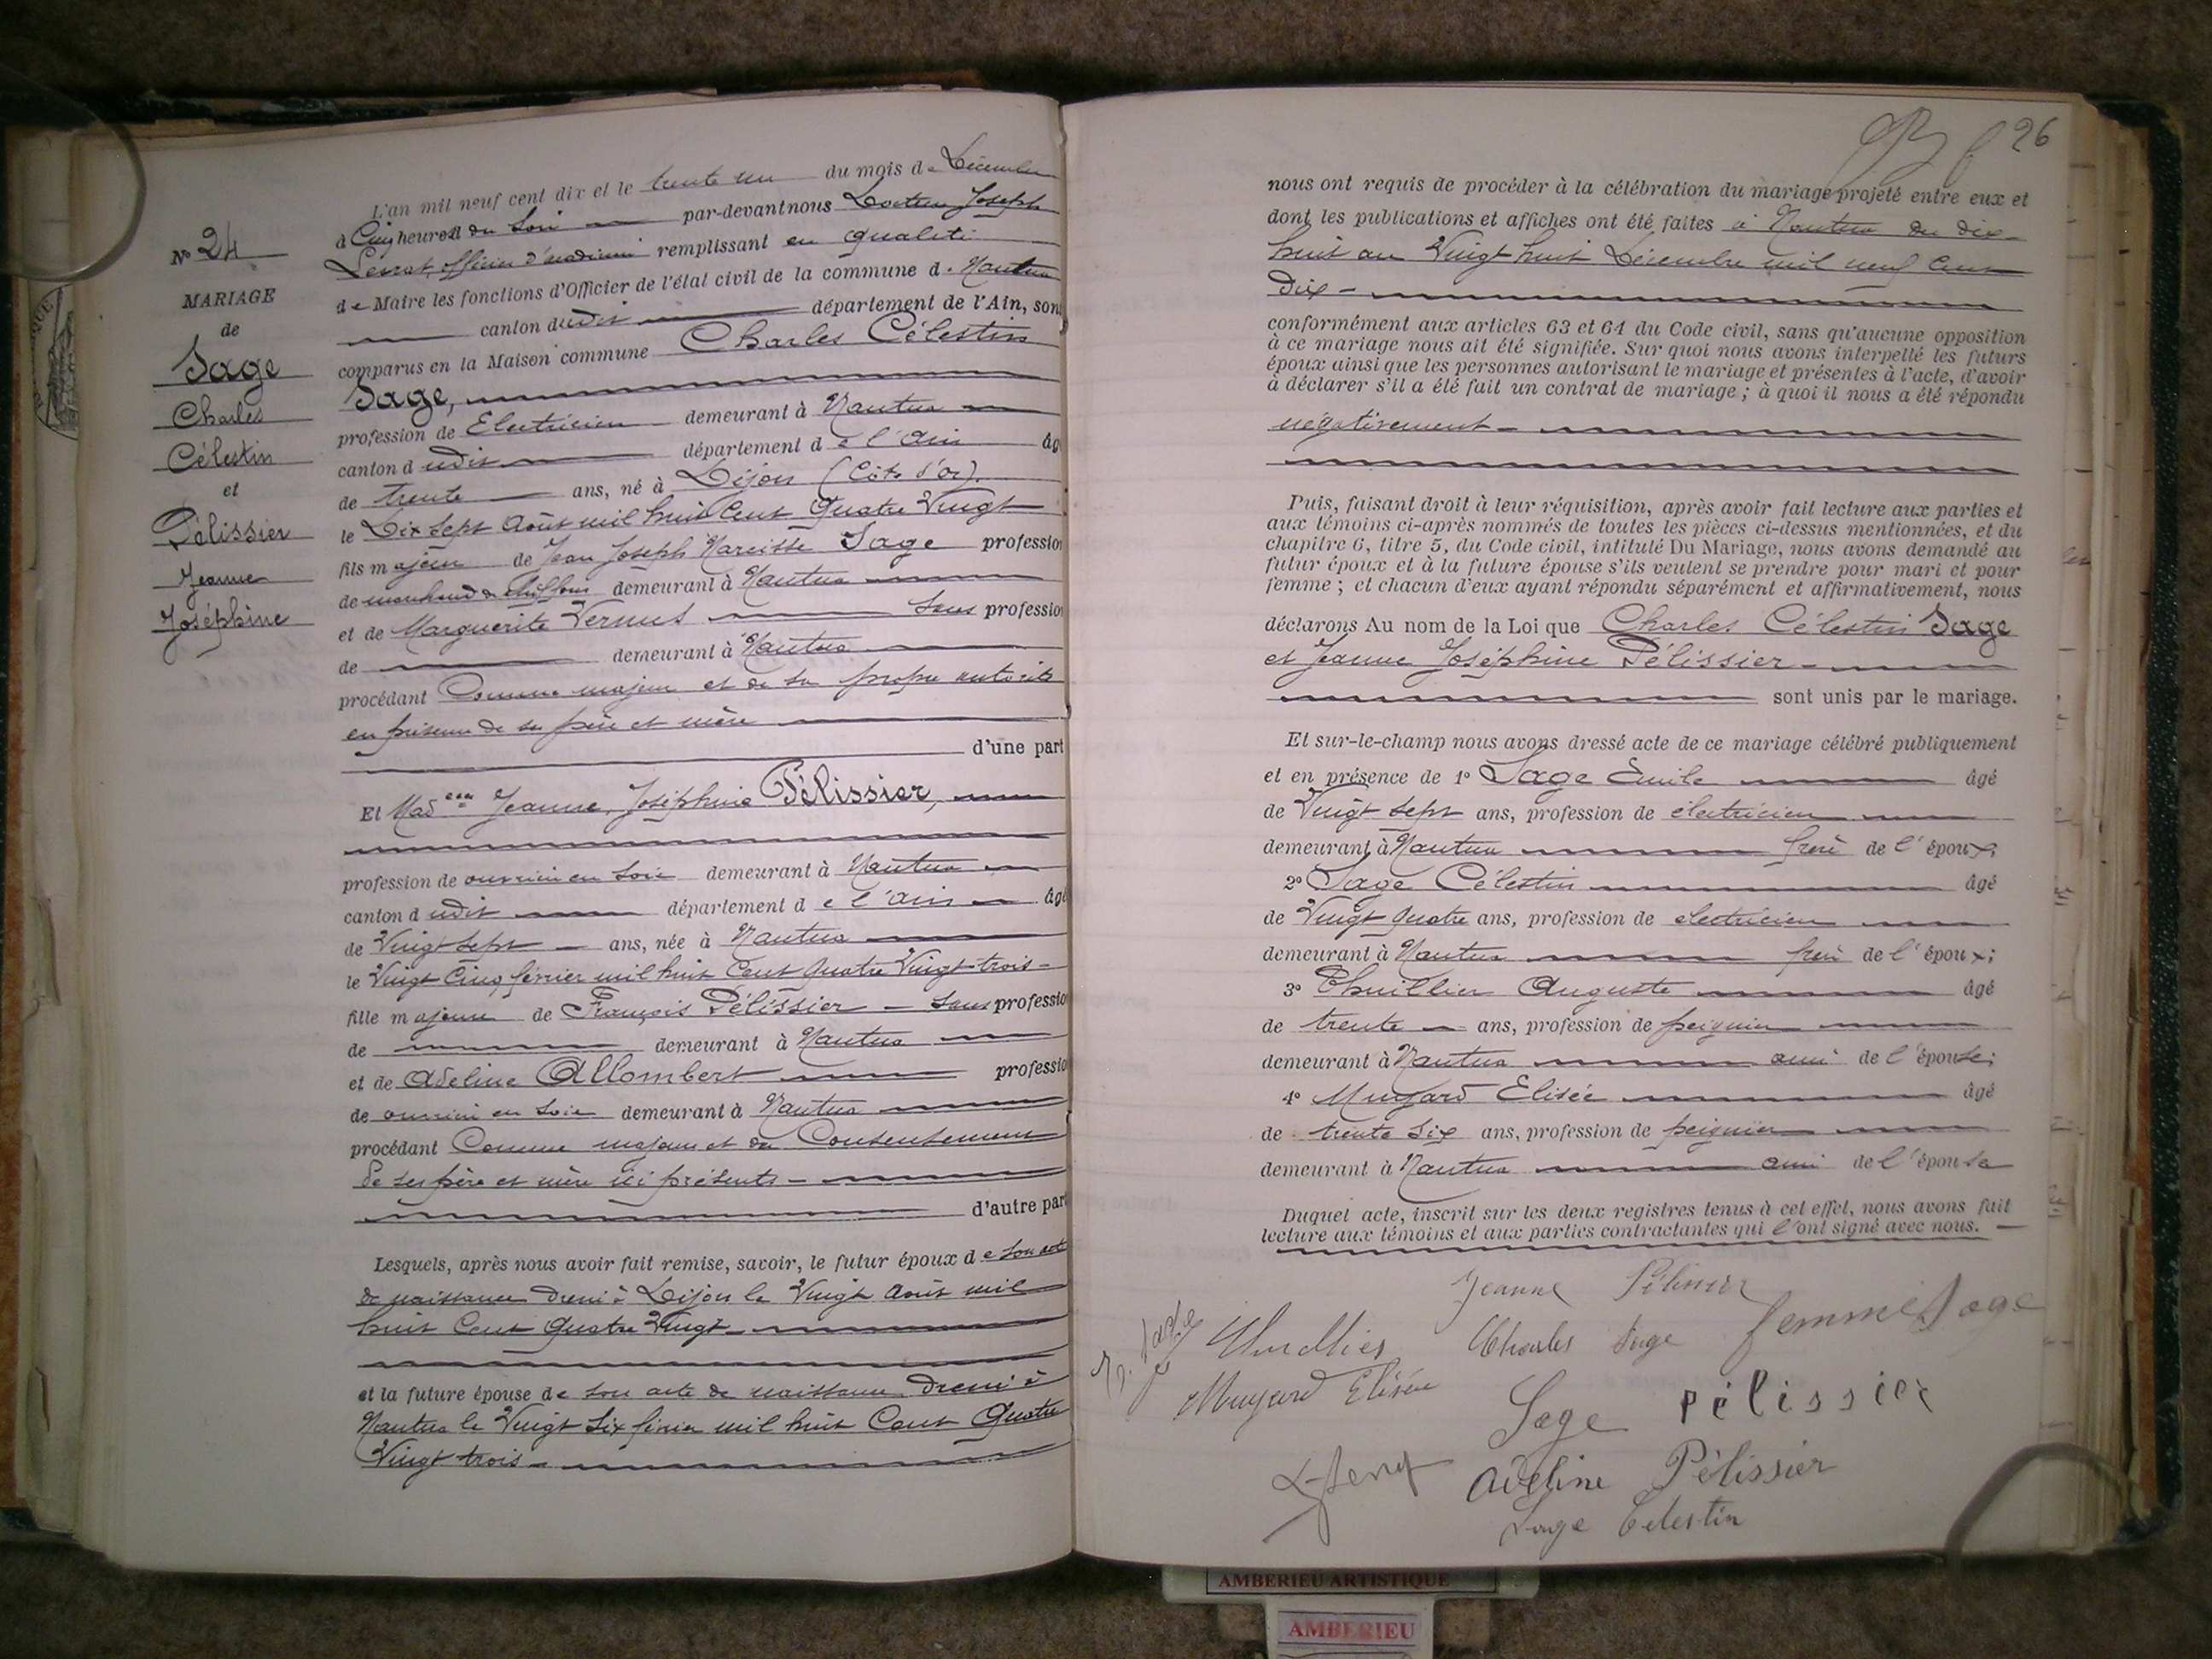 N° 24
MARIAGE
de
Sage
Charles
Célestin
et
Pélissier
Jeanne
Joséphine
L'an mil neuf cent dix et le trente un du mois de Décembre
à Cinq heures du Soir par-devant nous Docteur Joseph
officier d'académie remplissant en qualité
de Maire les fonctions d'Officier de l'état civil de la commune de Nantua
canton dudit département de l'Ain, sont
comparus en la Maison commune Charles Célestin
Sage,
profession de Electricien demeurant à Nantua
canton dudit département de l'Ain âgé
de trente ans, né à Dijon (Côte d'or).
le Dix sept Août mil huit Cent Quatre Vingt
fils majeur de Jean Joseph Narcisse Sage profession
de marchand de chiffons demeurant à Nantua
et de Marguerite Vernus Sans profession
de demeurant à Nantua
procédant Comme majeur et de sa propre autorité
en présence de ses père et mère
d'une part
Et Mad elle Jeanne, Joséphine Pélissier,
profession de ouvrière en soie demeurant à Nantua
canton dudit département de l'Ain âgé
de Vingt sept ans, née à Nantua
le Vingt Cinq février mil huit Cent Quatre Vingt trois
fille majeure de François Pélissier Sans profession
de demeurant à Nantua
et de Adeline Allombert profession
de ouvrière en soie demeurant à Nantua
procédant Comme majeure et du Consentement
de ses père et mère ici présents
d'autre part
Lesquels, après nous avoir fait remise, savoir, le futur époux de son acte
de naissance dressé à Dijon le Vingt Août mil
huit Cent Quatre Vingt
et la future épouse de son acte de naissance dressé à
Nantua le Vingt Six février mil huit Cent Quatre
Vingt trois
26
nous ont requis de procéder à la célébration du mariage projeté entre eux et
dont les publications et affiches ont été faites à Nantua du dix-
huit au Vingt huit Décembre mil neuf Cent
Dix
conformément aux articles 63 et 64 du Code civil, sans qu'aucune opposition
à ce mariage nous ait été signifiée. Sur quoi nous avons interpellé les futurs
époux ainsi que les personnes autorisant le mariage et présentes à l'acte, d'avoir
à déclarer s'il a été fait un contrat de mariage ; à quoi il nous a été répondu
négativement
Puis, faisant droit à leur réquisition, après avoir fait lecture aux parties et
aux témoins ci-après nommés de toutes les pièces ci-dessus mentionnées, et du
chapitre 6, titre 5, du Code civil, intitulé Du Mariage, nous avons demandé au
futur époux et à la future épouse s'ils veulent se prendre pour mari et pour
femme ; et chacun d'eux ayant répondu séparément et affirmativement, nous
déclarons Au nom de la Loi que Charles Célestin Sage
et Jeanne Joséphine Pélissier
sont unis par le mariage.
Et sur-le-champ nous avons dressé acte de ce mariage célébré publiquement
et en présence de 1° Sage Emile âgé
de Vingt sept ans, profession de électricien
demeurant à Nantua frère de l'époux;
2° Sage Célestin âgé
de Vingt Quatre ans, profession de electricien
demeurant à Nantua frère de l'époux;
3° Thuillier Auguste âgé
de trente ans, profession de peignier
demeurant à Nantua ami de l'épouse;
4° Muyard Elisée âgé
de trente Six ans, profession de peignier
demeurant à Nantua ami de l'épouse
Duquel acte, inscrit sur les deux registres tenus à cet effet, nous avons fait
lecture aux témoins et aux parties contractantes qui l'ont signé avec nous.
Jeanne Pélissier
Sage Thuillier Charles Sage femme Sage
Muyard Elisée Sage pélissier
Adeline Pélissier
Sage Célestin
AMBERIEU ARTISTIQUE
AMBERIEU